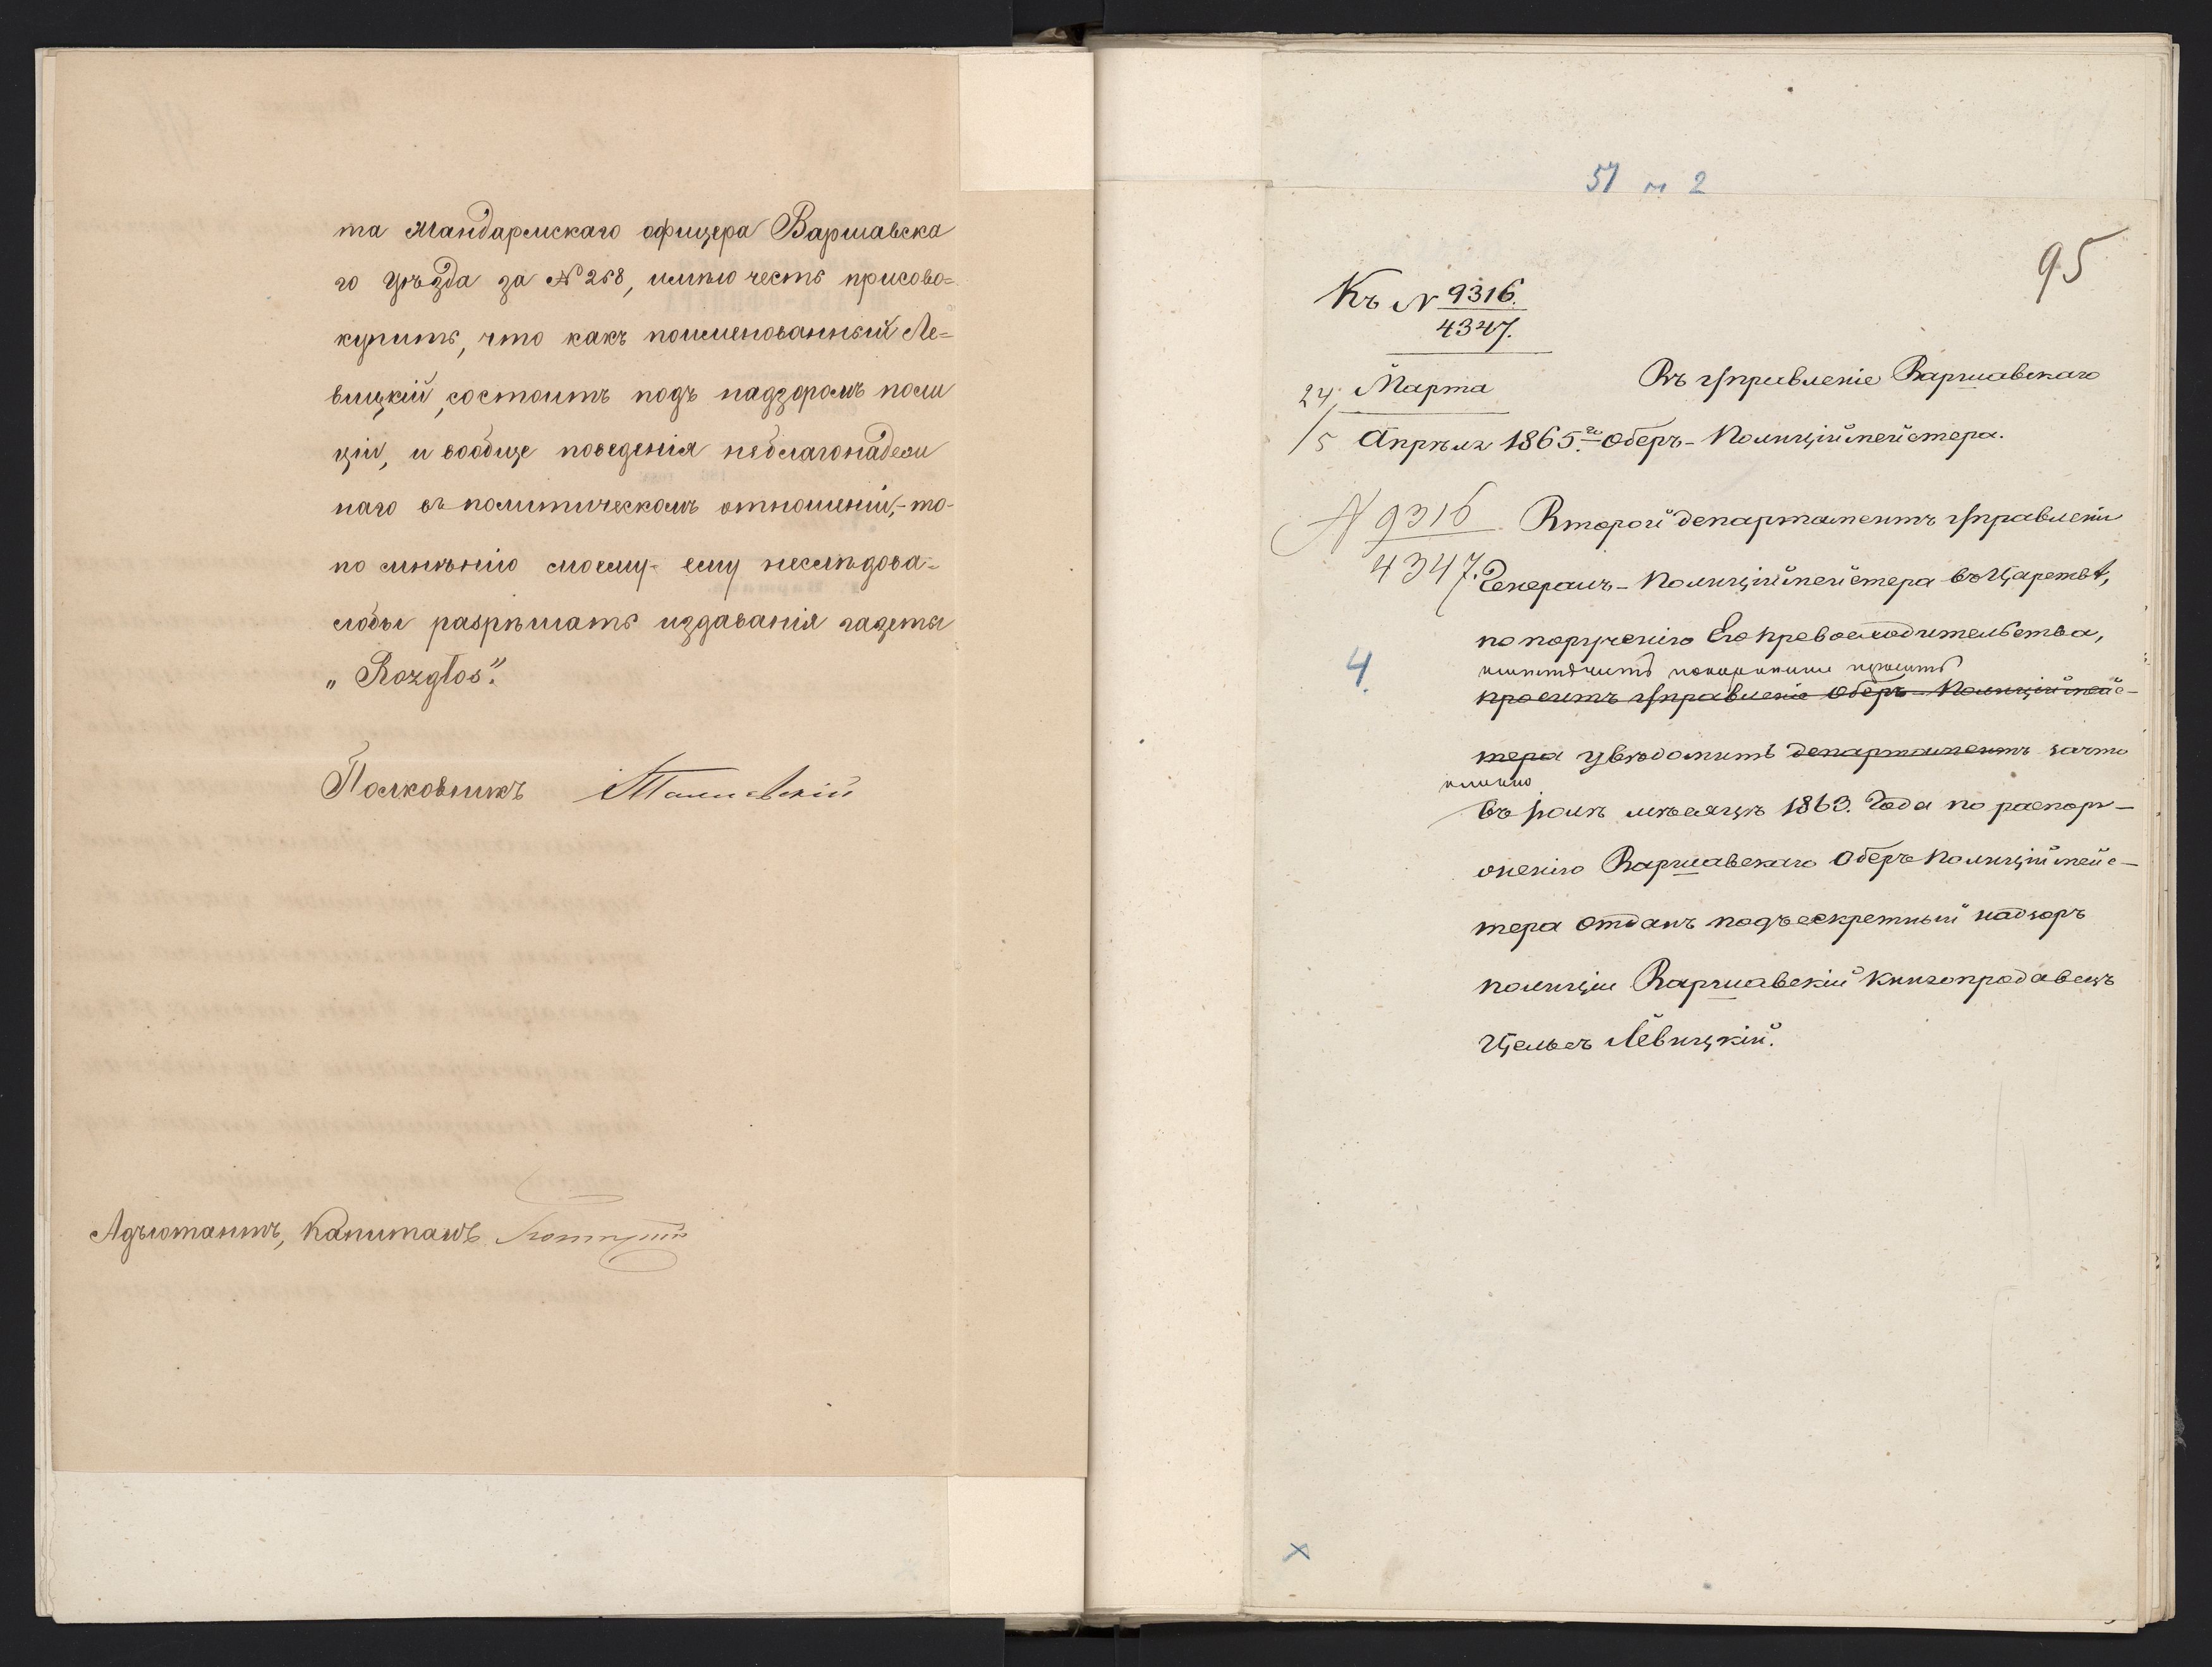 та Жандармскаго офицера Варшавска
го Уѣзда за № 268, имѣю честь присово=
купить, что какъ поименованный Ле=
вицкій, состоитъ подъ надзоромъ поли
ціи, и вообще поведенія неблагонадеж
наго въ политическомъ отношеніи,- то-
по мнѣнію моему- ему неслѣдова=
лобы разрѣшать издаванія газеты
„Rozgłos".
Полковникъ
Адъютантъ, Капитанъ
51 2
95
Къ № 9316.
4347.
24 Марта
/5 Апрѣля 1865.го
Въ Управленіе Варшавскаго
Оберъ-Полиціймейстера.
№ 9316
4347.
4.
Второй департаментъ Управленія
Генералъ-Полиціймейстера въ Царствѣ,
по порученію Его Превосходительства,
покорнѣйше проситъ
проситъ Управленіе Оберъ-Полиціймейс-
тера увѣдомить департаментъ зачто
именно
въ Іюлѣ мѣсяцѣ 1863. Года по распоря-
женію Варшавскаго Оберъ Полиціймейс-
тера отданъ подъ секретный надзоръ
полиціи Варшавскій Книгопродавецъ
Цельсъ Левицкій.